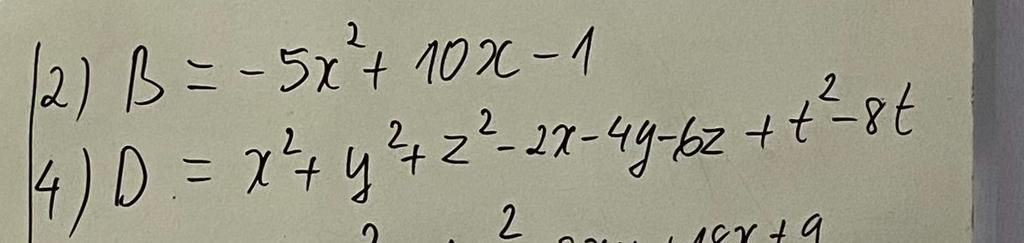 2) B = -5x² + 10x - 1
4) D = x² + y² + z² - 2x - 4y - 6z + t² - 8t